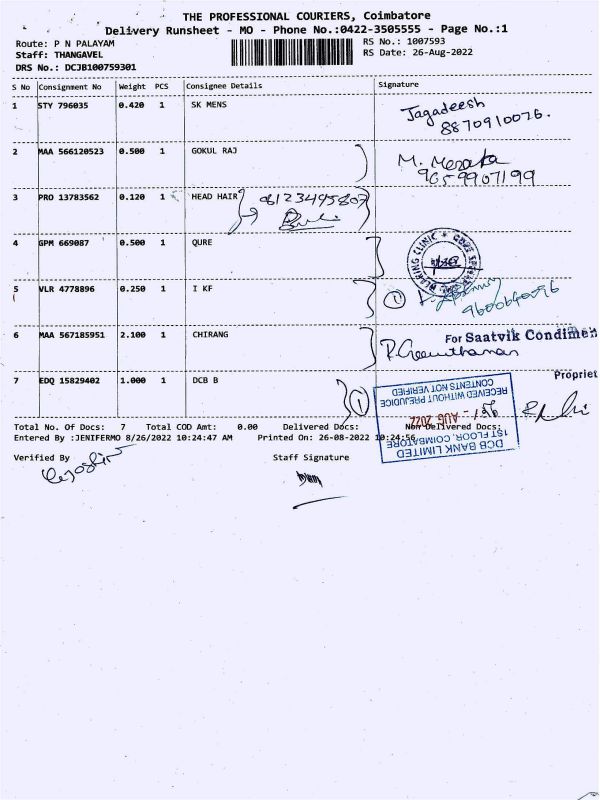 THE PROFESSIONAL COURIERS, Coimbatore
Delivery Runsheet - MO - Phone No.:0422-3505555 - Page No.:1
Route: P N PALAYAM
RS No.: 1007593
Staff: THANGAVEL
RS Date: 26-Aug-2022
DRS No.: DCJB100759301
S No Consignment No Weight PCS Consignee Details Signature
1 STY 796035 0.420 1 SK MENS Jagadeesh
8870910076.
2 MAA 566120523 0.500 1 GOKUL RAJ M.
9659907199
3 PRO 13783562 0.120 1 HEAD HAIR 08123495807
4 GPM 669087 0.500 1 QURE
5 VLR 4778896 0.250 1 I KF 1
9600640096
6 MAA 567185951 2.100 1 CHIRANG For Saatvik Condimen
Propriet
7 EDQ 15829402 1.000 1 DCB B 1
DCB BANK LIMITED
1ST FLOOR, COIMBATORE
AUG 2022
RECEIVED WITHOUT PREJUDICE
CONTENTS NOT VERIFIED
Total No. Of Docs: 7 Total COD Amt: 0.00 Delivered Docs: Non-Delivered Docs:
Entered By :JENIFERMO 8/26/2022 10:24:47 AM Printed On: 26-08-2022 10:24:56
Verified By Staff Signature